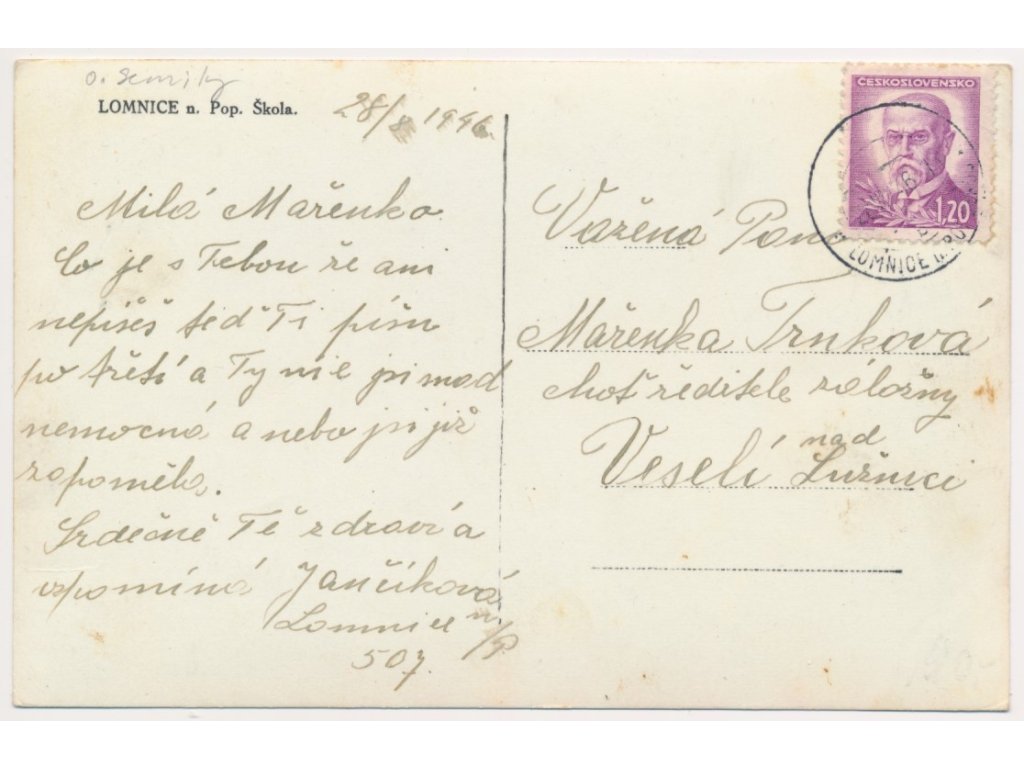 o. Semily
LOMNICE n. Pop. Škola.
28/8 1946
Milá Mařenko
Co je s Tebou že ani
nepíšeš teď Ti píši
po třetí a Ty nic jsi snad
nemocná a nebo jsi již
zapoměla.
Srdečně Tě zdraví a
vzpomíná Jančíková
Lomnice n/P
507.
ČESKOSLOVENSKO
1,20
LOMNICE n. POP
Vážená Paní
Mařenka Trnková
choť ředitele záložny
Veselí nad
Lužnicí